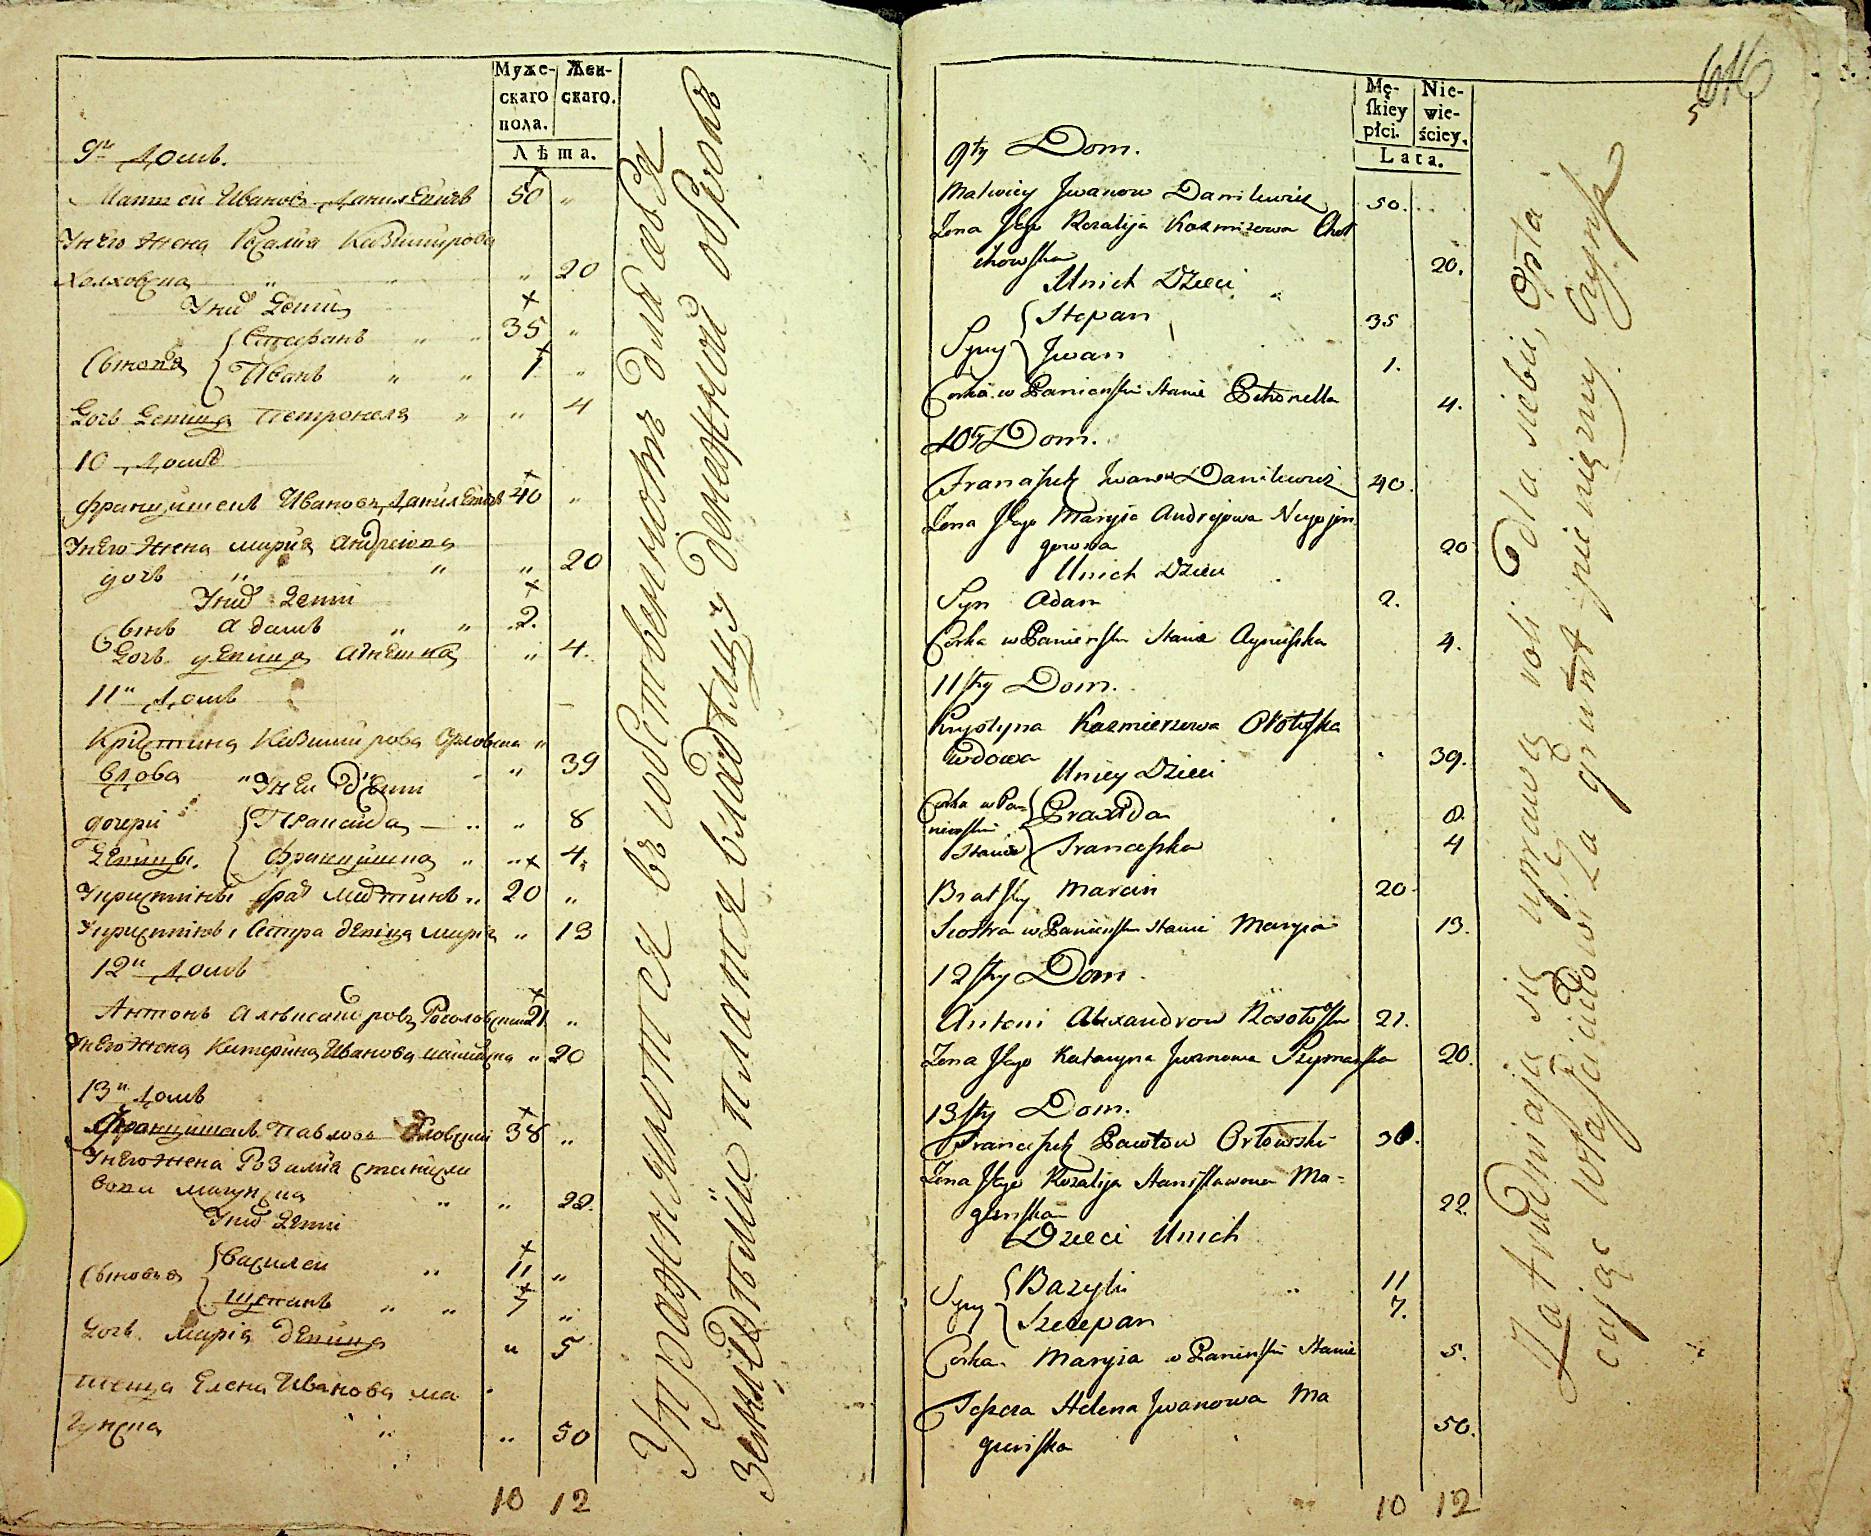 Муже- Жен-
скаго скаго.
пола.
Лѣта.
9й Домъ.
Матвей Ивановъ Данилевичъ 50 „
У него жена Розалия Казимирова
Холховска „ „ „ 20
У нихъ Дети
Сыновья { Стефанъ „ „ 35 „
Иванъ „ „ 1 „
Дочь Девица Петронеля „ „ 4
10 Домъ
Францишекъ Ивановъ Данилевичъ 40 „
У него жена Мария Андреева
„ „ „ 20
У нихъ Дети
Сынъ Адамъ „ „ 2.
Дочь девица Агнешка „ 4.
11й Домъ
Кристина Казимирова Орловска „
вдова „ „ 39
У неи Дети
дочери { Праксида „ „ 8
Девицы. { Францишка „ „ 4.
У кристины братъ Мартинъ „ 20 „
У кристины Сестра девица Мария „ 13
12й Домъ
Антонъ Александровъ Росоловский 21 „
У него жена Катерина Иванова „ 20
13й Домъ
Францишекъ Павловъ Орловский 38 „
У него жена Розалия Станисла
вова Магунска „ „ 22.
У нихъ Дети
Сыновья { Василей „ 11 „
Щепанъ „ „ 7 „
Дочь Мария девица „ 5
теща Елена Иванова Ма
гунска „ „ 50
10 12
Упражняются въ собственность для себя
Землѣдѣлiе платя владѣльцу денежный оброкъ
616
5
Mę- Nie-
skiey wie-
płci. ściey.
Lata.
9ty Dom.
Matwiey Iwanow Danilewicz 50.
Zona Jego Rozalija Kazmirowa Choł
chowska 20.
U nich Dzieci
Syny { Stepan 35
Jwan 1.
Corka w Panieńskim Stanie Petronella 4.
10ty Dom.
Franciszek Iwanow Danilewicz 40.
Zona Jego Maryja Andrejowa
20
U nich Dzieci
Syn Adam 2.
Corka w Panieńskim Stanie Agnieszka 4.
11sty Dom.
Krystyna Kazmierzowa Orłowska
Wdowa 39.
U niey Dzieci
Corka w Pa- { Praxida 8.
nieńskim
Stanie { Franciszka 4
Brat Jey Marcin 20
Siostra w Panieńskim Stanie Maryia 13.
12sty Dom
Antoni Alexandrow Rosołowski 21.
Zona Jego Katarzyna Jwanowa Szymańska 20.
13sty Dom.
Franciszek Pawłow Orłowski 38.
Zona Jego Rozalija Stanisławowa Ma-
guńska 22.
Dzieci U nich
Syny { Bazyli „ 11
Szczepan 7.
Corka Maryia w Panieńskim Stanie 5.
Teszcza Helena Jwanowa Ma
guńska 50.
10 12
Zatrudniają się uprawą roli dla siebie, Opła
cając Właścicielowi za grunt pieniężny Czynsz